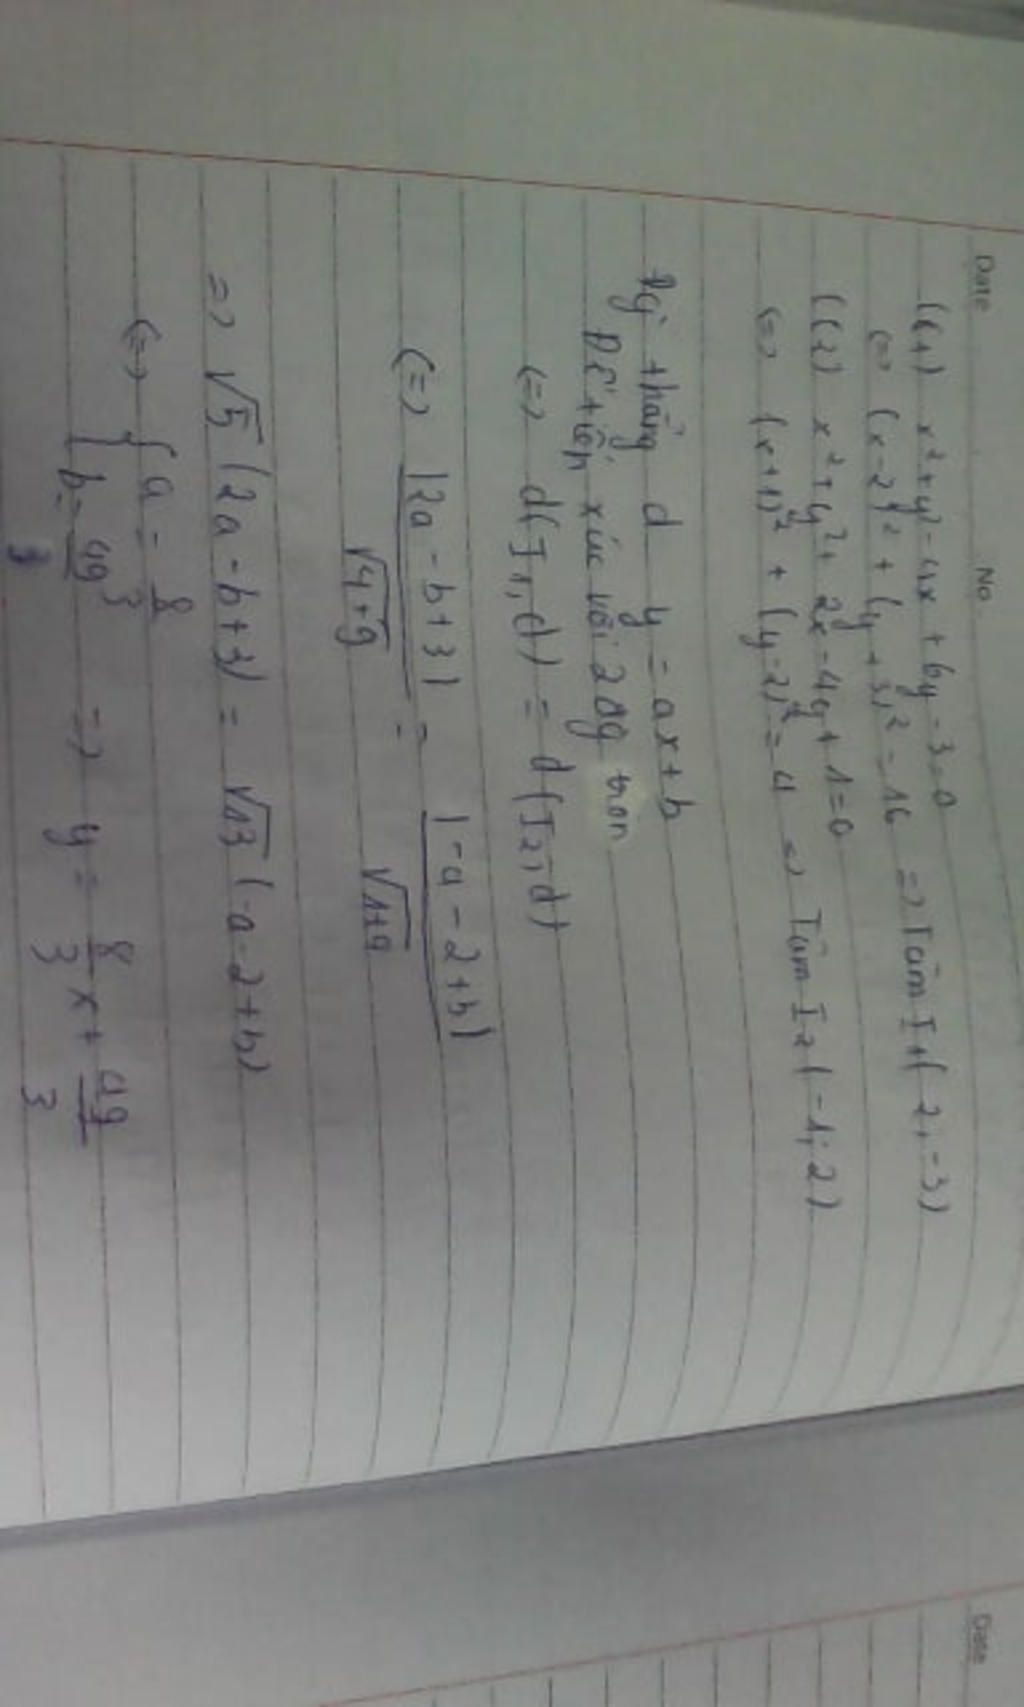 Date No.
(C1) x² + y² - 4x + 6y - 3 = 0
<=> (x-2)² + (y+3)² = 16 => Tâm I1(2,-3)
(C2) x² + y² + 2x - 4y + 1 = 0
<=> (x+1)² + (y-2)² = 4 => Tâm I2(-1;2)
thẳng d y = ax+b
Để tiếp xúc với 2 đg tròn
<=> d(I1,d) = d(I2,d)
<=> |2a - b + 3| / √4+9 = |-a - 2 + b| / √1+9
=> √5 (2a - b + 3) = √13 (-a - 2 + b)
<=> { a = 8/3
{ b = 49/3 => y = 8/3 x + 49/3
Date